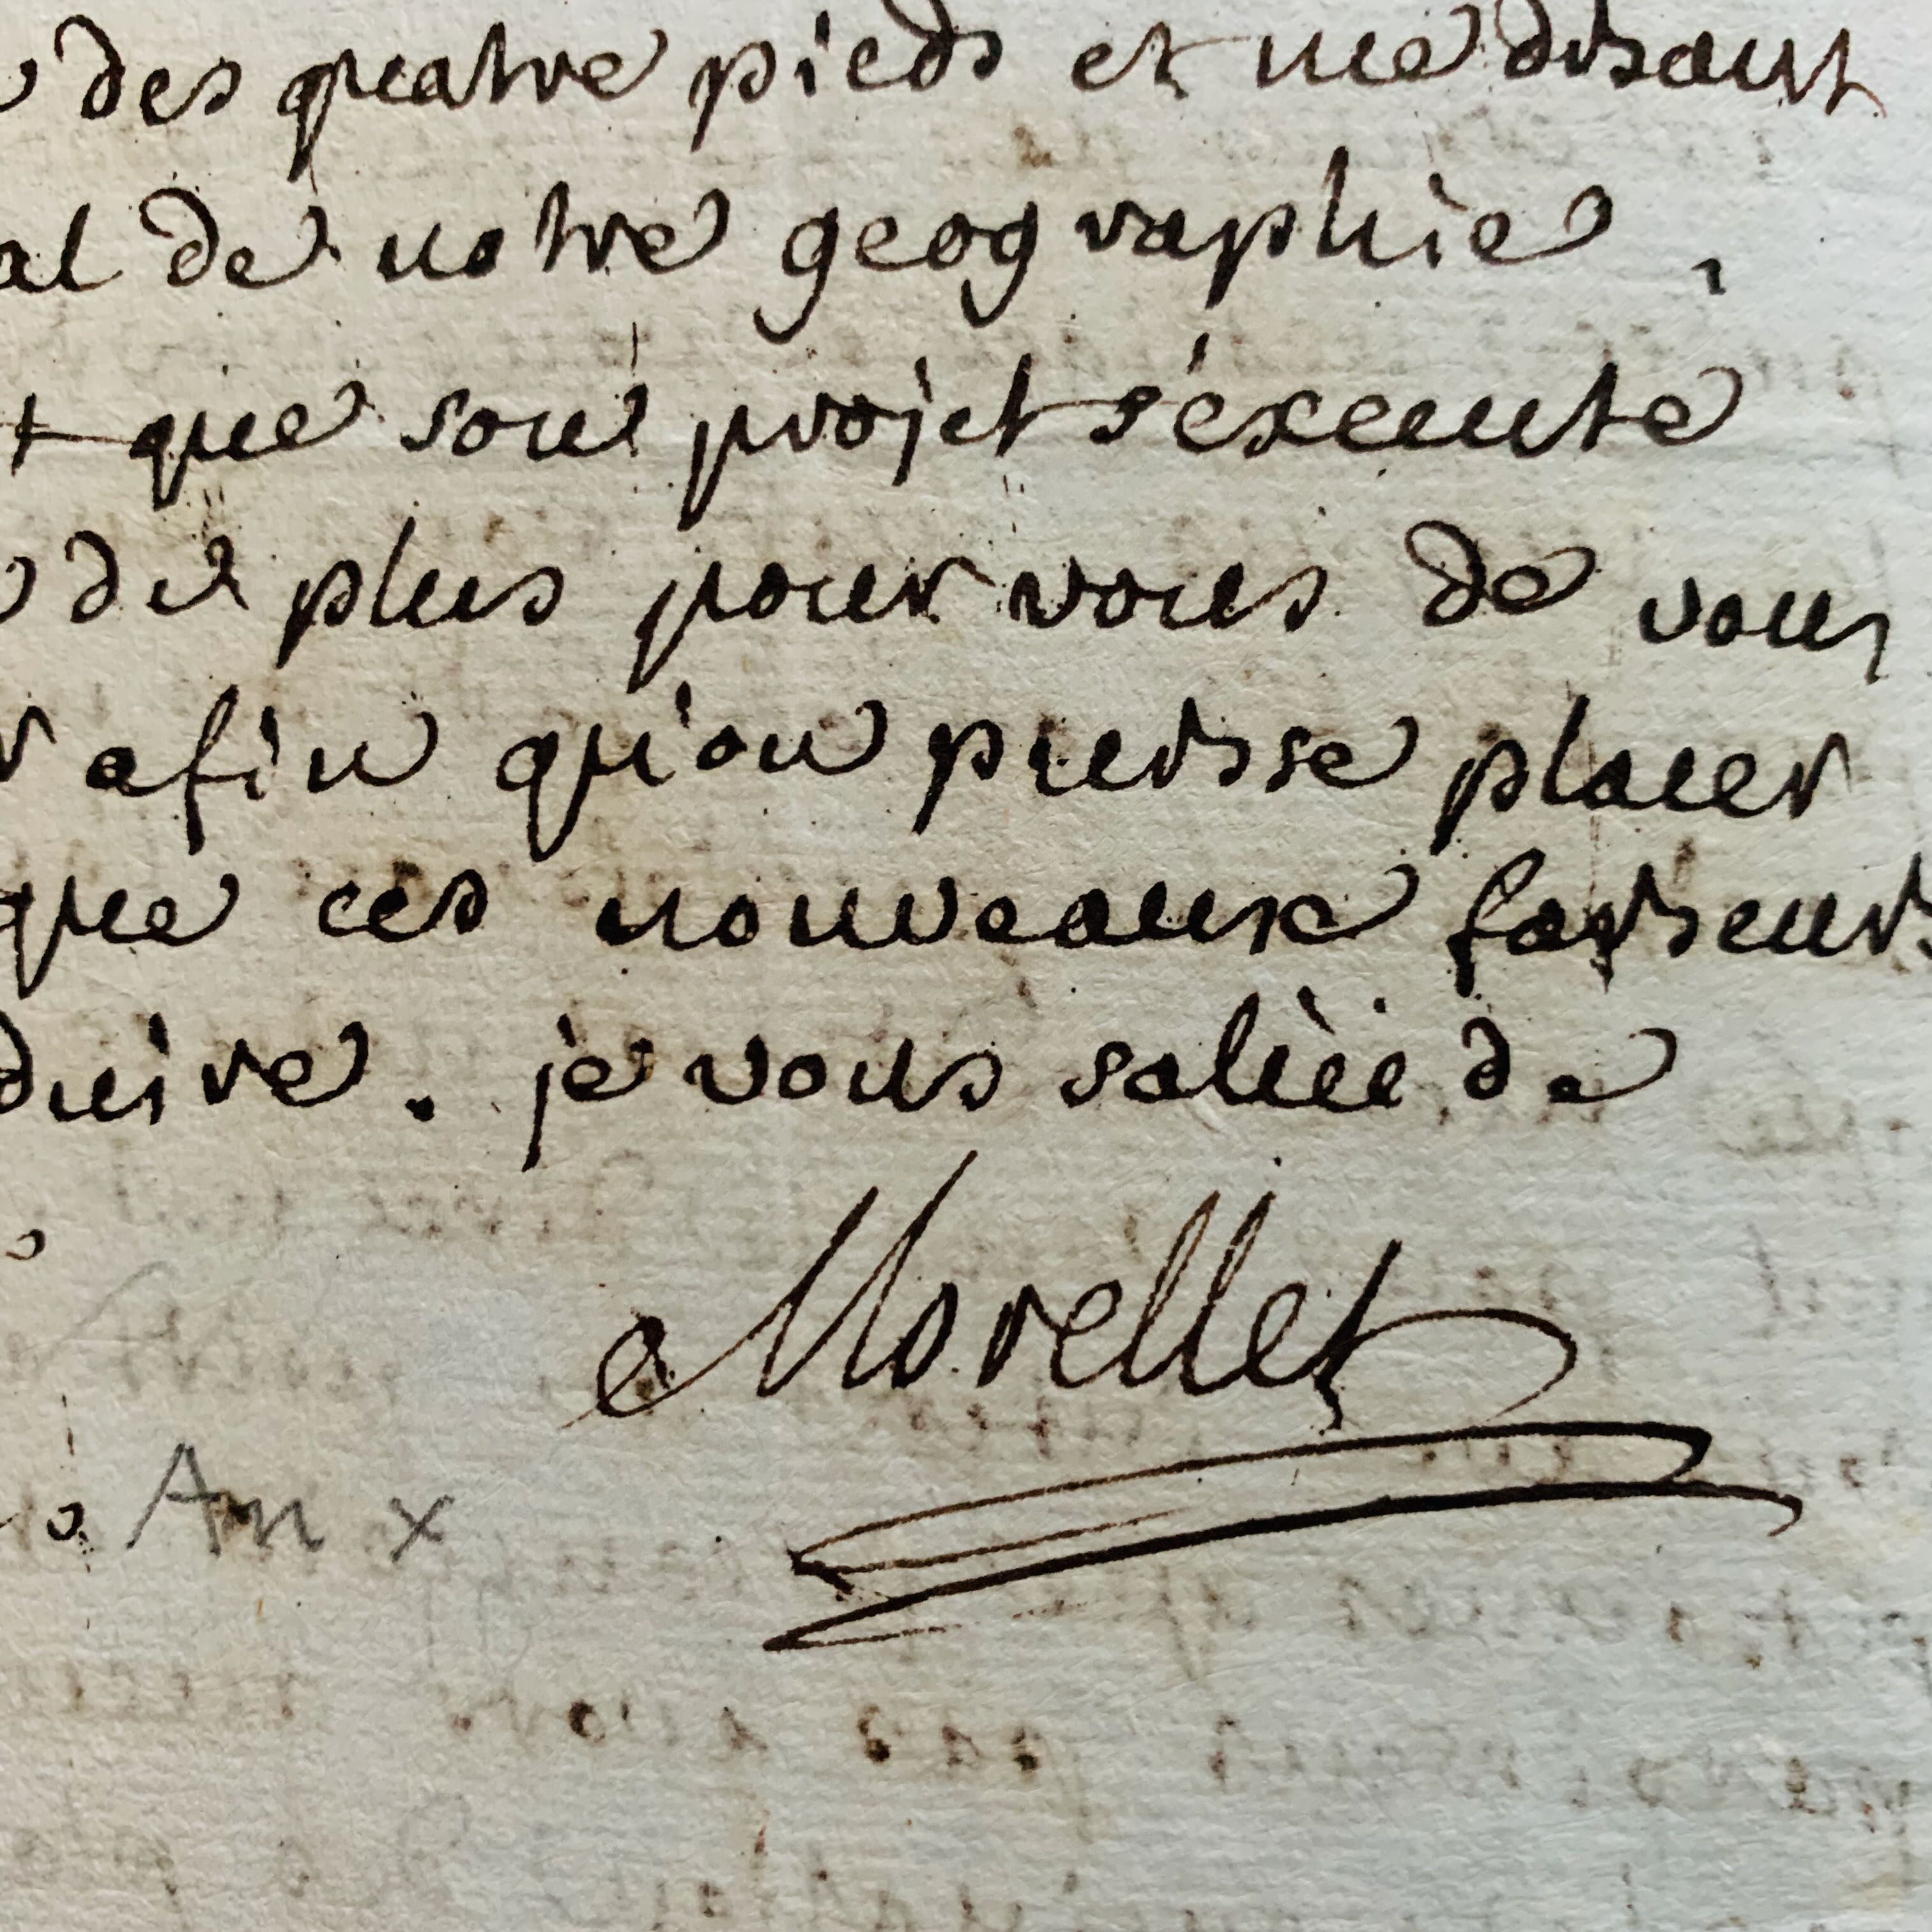 des quatre pieds et me disant
al de notre geographie,
t que son projet s'execute
de plus pour vous de vous
r afin qu'on puisse placer
que ces nouveaux faiseurs
duire. je vous salüe de
Morellet
An x